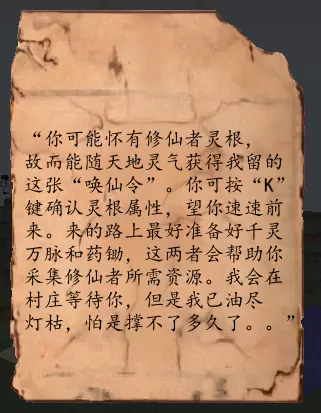 “你可能怀有修仙者灵根，
故而能随天地灵气获得我留的
这张“唤仙令”。你可按“K”
键确认灵根属性，望你速速前
来。来的路上最好准备好千灵
万脉和药锄，这两者会帮助你
采集修仙者所需资源。我会在
村庄等待你，但是我已油尽
灯枯，怕是撑不了多久了。。”